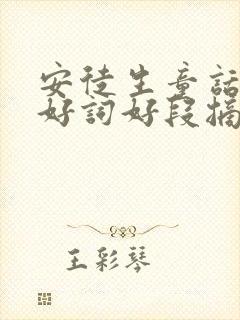 安徒生童話
好詞好段摘
王彩琴